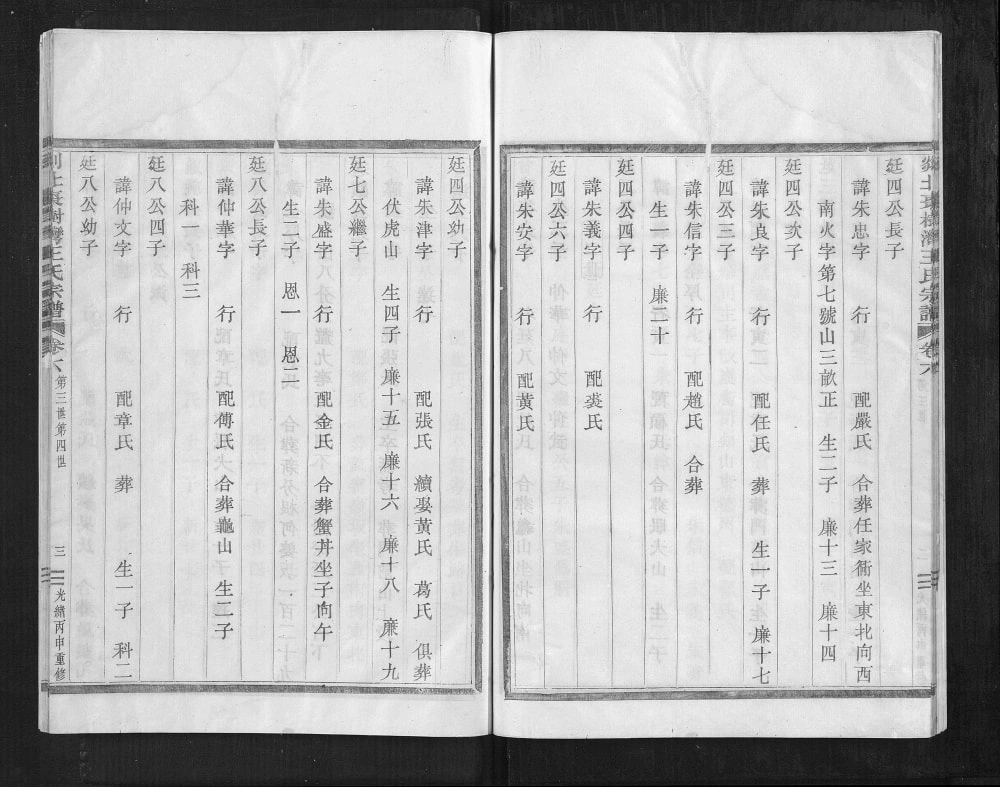 廷四公長子
諱朱忠字 行 配嚴氏 合葬任家衕坐東北向西
南火字第七號山三畝正 生二子 廉十三 廉十四
廷四公次子
諱朱良字 行 配任氏 葬 生一子 廉十七
廷四公三子
諱朱信字 行 配趙氏 合葬
生一子 廉二十
廷四公四子
諱朱義字 行 配裘氏
廷四公六子
諱朱安字 行 配黄氏
廷四公幼子
諱朱津字 行 配張氏 續娶黄氏 葛氏 俱葬
伏虎山 生四子 廉十五 廉十六 廉十八 廉十九
廷七公繼子
諱朱盛字 行 配金氏 合葬蟹丼坐子向午
生二子 恩一 恩二
廷八公長子
諱仲華字 行 配傅氏 合葬龜山 生二子
科一 科三
廷八公四子
諱仲文字 行 配章氏 葬 生一子 科二
廷八公幼子
王氏宗譜 卷六 第三世第四世 三 光緒丙申重修